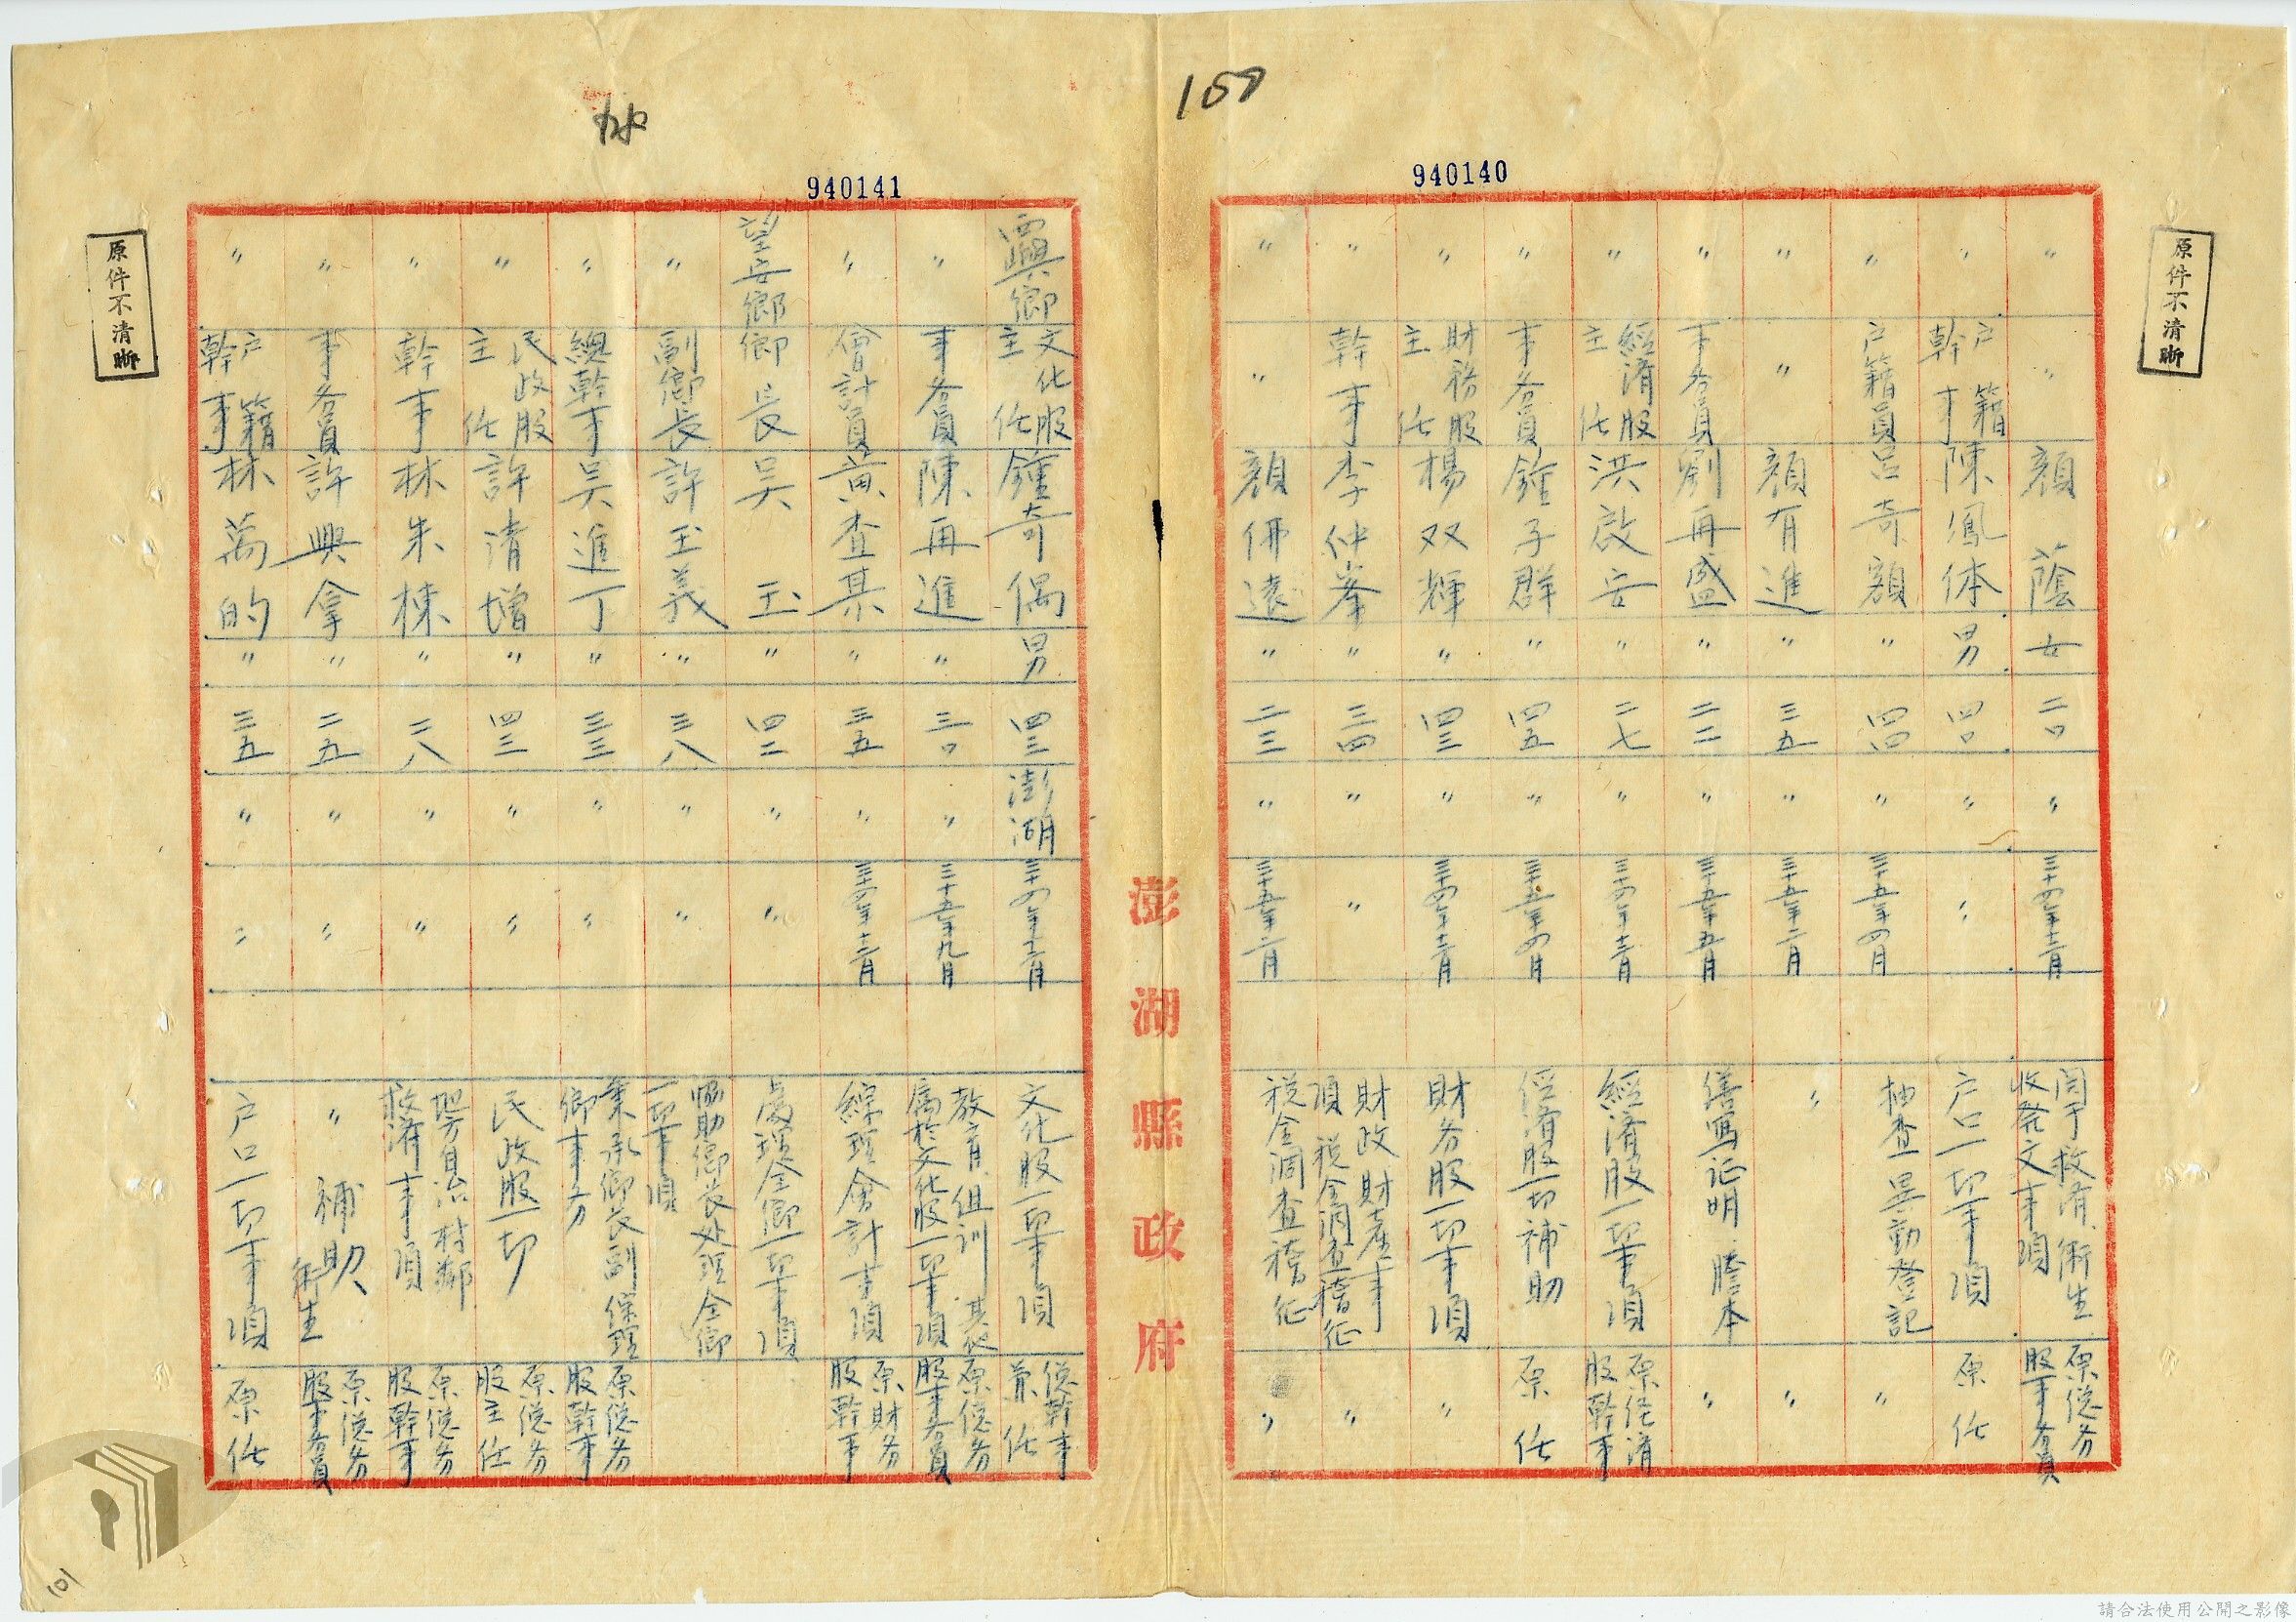 159
940140
940141
原件不清晰
原件不清晰
澎湖縣政府
〃 〃 顏蔭 女 二〇 〃 三十四年十二月 関于救済、衛生 收発文事項 原総务股事务員
〃 戶籍幹事 陳鳳体 男 四〇 〃 〃 户口一切事項 原任
〃 户籍員 呂奇額 〃 四四 〃 三十五年四月 抽查異動登記 〃
〃 〃 顏有進 〃 三九 〃 三十五年二月 〃 〃
〃 事务員 劉再盛 〃 二二 〃 三十五年五月 繕寫証明 謄本 〃
〃 經済股主任 洪啟安 〃 二七 〃 三十四年十二月 經済股一切事項 原経済股幹事
〃 事务員 鍾子群 〃 四五 〃 三十五年四月 経済股一切補助 原任
〃 財務股主任 楊双輝 〃 四三 〃 三十四年十二月 財务股一切事項 〃
〃 幹事 李仲峯 〃 三四 〃 〃 財政財産事項 税金調查稽征 〃
〃 〃 顏佛遠 〃 二三 〃 三十五年二月 税金調查稽征 〃
西嶼鄉 文化股主任 鍾奇偶 男 四三 澎湖 三十四年十二月 文化股一切事項 総幹事兼任
〃 事务員 陳再進 〃 三〇 〃 三十五年九月 教育、組訓 其他屬於文化股一切事項 原総务股事务員
〃 會計員 黃查某 〃 三五 〃 三十四年十二月 綜理會計事項 原財务股幹事
望安鄉 鄉長 吳玉 〃 四二 〃 〃 處理全鄉一切事項
〃 副鄉長 許玉義 〃 三八 〃 〃 協助鄉長处理全鄉一切事項
〃 總幹事 吳進丁 〃 三三 〃 〃 秉承鄉長副綜理鄉事务 原総务股幹事
〃 民政股主任 許清增 〃 四三 〃 〃 民政股一切 原総务股主任
〃 幹事 林朱棟 〃 二八 〃 〃 地方自治村鄰救済事項 原総务股幹事
〃 事务員 許興拿 〃 二五 〃 〃 〃 補助 衛生 原総务股事务員
〃 户籍幹事 林萬的 〃 三五 〃 〃 户口一切事項 原任
101
請合法使用公開之影像